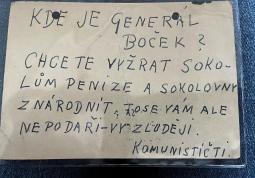 KDE JE GENERÁL
BOČEK?
CHCETE VYŽRAT SOKO-
LŮM PENÍZE A SOKOLOVNY
ZNÁRODNIT, TOSE VÁM ALE
NEPODAŘÍ-VY ZLODĚJI.
KOMUNISTIČTI.